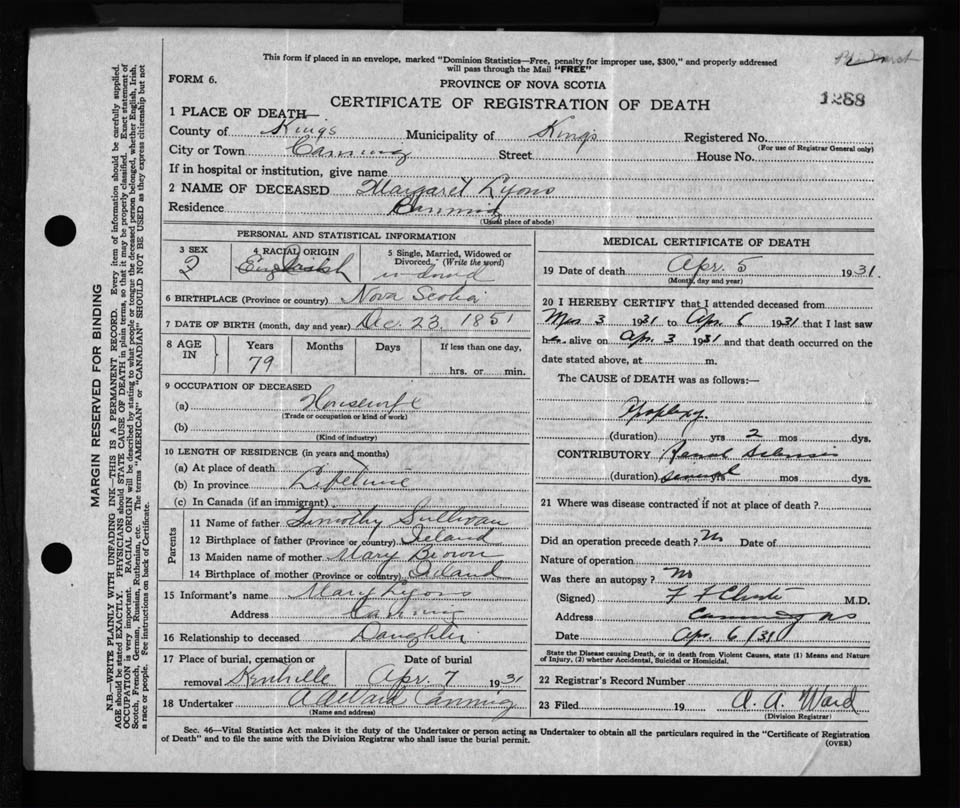 This form if placed in an envelope, marked "Dominion Statistics—Free, penalty for improper use, $300," and properly addressed
will pass through the Mail "FREE"
FORM 6.
PROVINCE OF NOVA SCOTIA
CERTIFICATE OF REGISTRATION OF DEATH
1288
1 PLACE OF DEATH—
County of Kings Municipality of Kings Registered No.
(For use of Registrar General only)
City or Town Canning Street House No.
If in hospital or institution, give name
2 NAME OF DECEASED Margaret Lyons
Residence Canning
(Usual place of abode)
PERSONAL AND STATISTICAL INFORMATION
3 SEX
4 RACIAL ORIGIN
5 Single, Married, Widowed or
Divorced, (Write the word)
6 BIRTHPLACE (Province or country) Nova Scotia
7 DATE OF BIRTH (month, day and year) Dec. 23. 1851
8 AGE IN Years Months Days If less than one day,
79 hrs. or min.
9 OCCUPATION OF DECEASED
(a) Housewife
(Trade or occupation or kind of work)
(b)
(Kind of industry)
10 LENGTH OF RESIDENCE (in years and months)
(a) At place of death
(b) In province Lifetime
(c) In Canada (if an immigrant)
Parents
11 Name of father Timothy Sullivan
12 Birthplace of father (Province or country) Ireland
13 Maiden name of mother Mary Brown
14 Birthplace of mother (Province or country) Ireland
15 Informant's name Mary Lyons
Address Canning
16 Relationship to deceased Daughter
17 Place of burial, cremation or
removal Kentville
Date of burial
Apr. 7 1931
18 Undertaker A A Ward Canning
(Name and address)
MEDICAL CERTIFICATE OF DEATH
19 Date of death Apr. 5 1931.
(Month, day and year)
20 I HEREBY CERTIFY that I attended deceased from
Mar 3 1931 to Apr. 1931 that I last saw
her alive on Apr. 3 1931 and that death occurred on the
date stated above, at m.
The CAUSE of DEATH was as follows:—
Apoplexy.
(duration) yrs 2 mos dys.
CONTRIBUTORY Renal Sclerosis
(duration) several yrs mos dys.
21 Where was disease contracted if not at place of death?
Did an operation precede death? No Date of
Nature of operation
Was there an autopsy? No
(Signed) M.D.
Address Canning NS
Date Apr. 6/31
State the Disease causing Death, or in death from Violent Causes, state (1) Means and Nature
of Injury, (2) whether Accidental, Suicidal or Homicidal.
22 Registrar's Record Number
23 Filed 19 A. A. Ward
(Division Registrar)
Sec. 46—Vital Statistics Act makes it the duty of the Undertaker or person acting as Undertaker to obtain all the particulars required in the "Certificate of Registration
of Death" and to file the same with the Division Registrar who shall issue the burial permit.
(OVER)
MARGIN RESERVED FOR BINDING
N.B.—WRITE PLAINLY WITH UNFADING INK—THIS IS A PERMANENT RECORD. Every item of information should be carefully supplied.
AGE should be stated EXACTLY. PHYSICIANS should STATE CAUSE OF DEATH in plain terms, so that it may be properly classified. Exact statement of
OCCUPATION is very important. RACIAL ORIGIN will be described by stating to what people or tongue the deceased person belonged, whether English, Irish,
Scotch, French, German, Russian, Ruthenian, etc. The terms "AMERICAN" or "CANADIAN" SHOULD NOT BE USED as they express citizenship but not
a race or people. See instructions on back of Certificate.